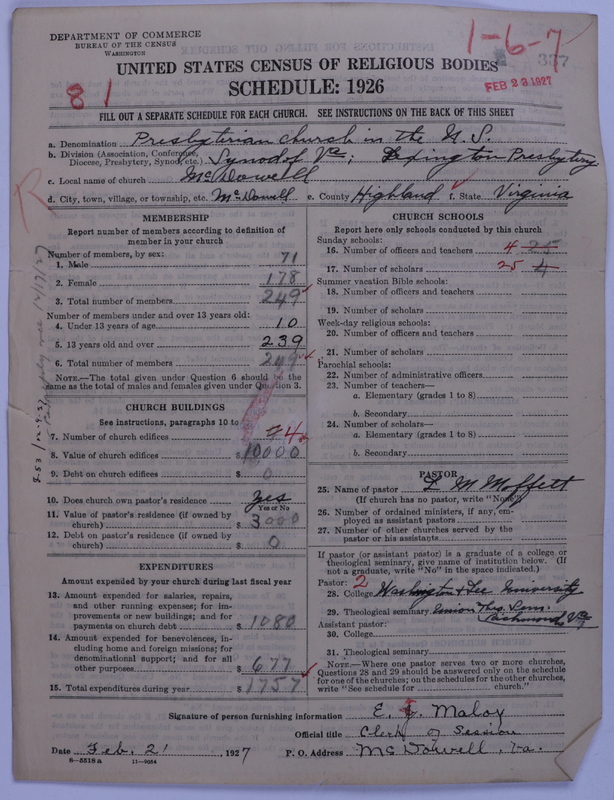 DEPARTMENT OF COMMERCE
BUREAU OF THE CENSUS
WASHINGTON
1-6-7
337
FEB 23 1927
UNITED STATES CENSUS OF RELIGIOUS BODIES
SCHEDULE: 1926
81
FILL OUT A SEPARATE SCHEDULE FOR EACH CHURCH. SEE INSTRUCTIONS ON THE BACK OF THIS SHEET
a. Denomination Presbyterian Church in the U.S.
b. Division (Association, Conference, Diocese, Presbytery, Synod, etc.) Synod of Va; Lexington Presbytery
c. Local name of church McDowell
d. City, town, village, or township, etc. McDowell e. County Highland f. State Virginia
R
MEMBERSHIP
Report number of members according to definition of member in your church
Number of members, by sex:
1. Male 71
2. Female 178
3. Total number of members 249
Number of members under and over 13 years old:
4. Under 13 years of age 10
5. 13 years old and over 239
6. Total number of members 249
NOTE.—The total given under Question 6 should be the same as the total of males and females given under Question 3.
CHURCH BUILDINGS
See instructions, paragraphs 10 to
7. Number of church edifices 4
8. Value of church edifices $ 10000
9. Debt on church edifices $ 0
10. Does church own pastor's residence Yes
Yes or No
11. Value of pastor's residence (if owned by church) $ 3000
12. Debt on pastor's residence (if owned by church) $ 0
EXPENDITURES
Amount expended by your church during last fiscal year
13. Amount expended for salaries, repairs, and other running expenses; for improvements or new buildings; and for payments on church debt $ 1080
14. Amount expended for benevolences, including home and foreign missions; for denominational support; and for all other purposes $ 677
15. Total expenditures during year $ 1757
CHURCH SCHOOLS
Report here only schools conducted by this church
Sunday schools:
16. Number of officers and teachers 4 25
17. Number of scholars 25 4
Summer vacation Bible schools:
18. Number of officers and teachers
19. Number of scholars
Week-day religious schools:
20. Number of officers and teachers
21. Number of scholars
Parochial schools:
22. Number of administrative officers
23. Number of teachers—
a. Elementary (grades 1 to 8)
b. Secondary
24. Number of scholars—
a. Elementary (grades 1 to 8)
b. Secondary
PASTOR
25. Name of pastor L M Moffett
(If church has no pastor, write "None")
26. Number of ordained ministers, if any, employed as assistant pastors
27. Number of other churches served by the pastor or his assistants
If pastor (or assistant pastor) is a graduate of a college or theological seminary, give name of institution below. (If not a graduate, write "No" in the space indicated.)
Pastor: 2
28. College Washington & Lee University
29. Theological seminary Union Theo. Sem. Richmond, Va
Assistant pastor:
30. College
31. Theological seminary
NOTE.—Where one pastor serves two or more churches, Questions 28 and 29 should be answered only on the schedule for one of the churches; on the schedules for the other churches, write "See schedule for church."
Signature of person furnishing information E. Maloy
Official title Clerk of Session
Date Feb. 21, 1927 P. O. Address McDowell, Va.
6—5518 a 11—9064